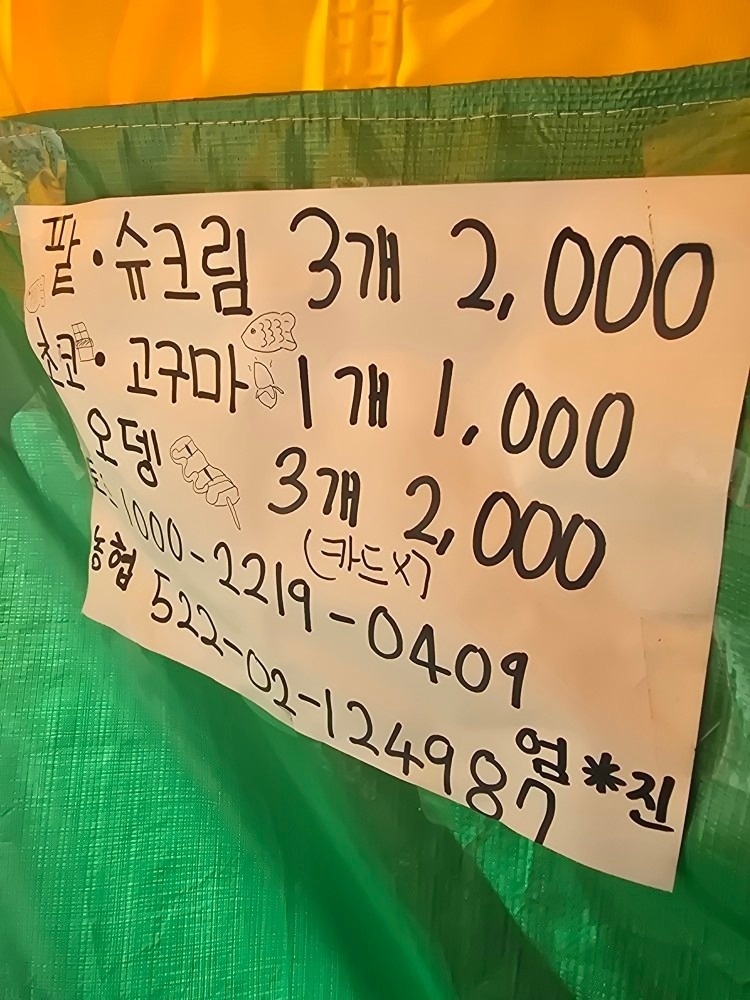 팥·슈크림 3개 2,000
초코·고구마 1개 1,000
오뎅 3개 2,000
(카드X)
1000-2219-0409
농협 522-02-124987
엄*진